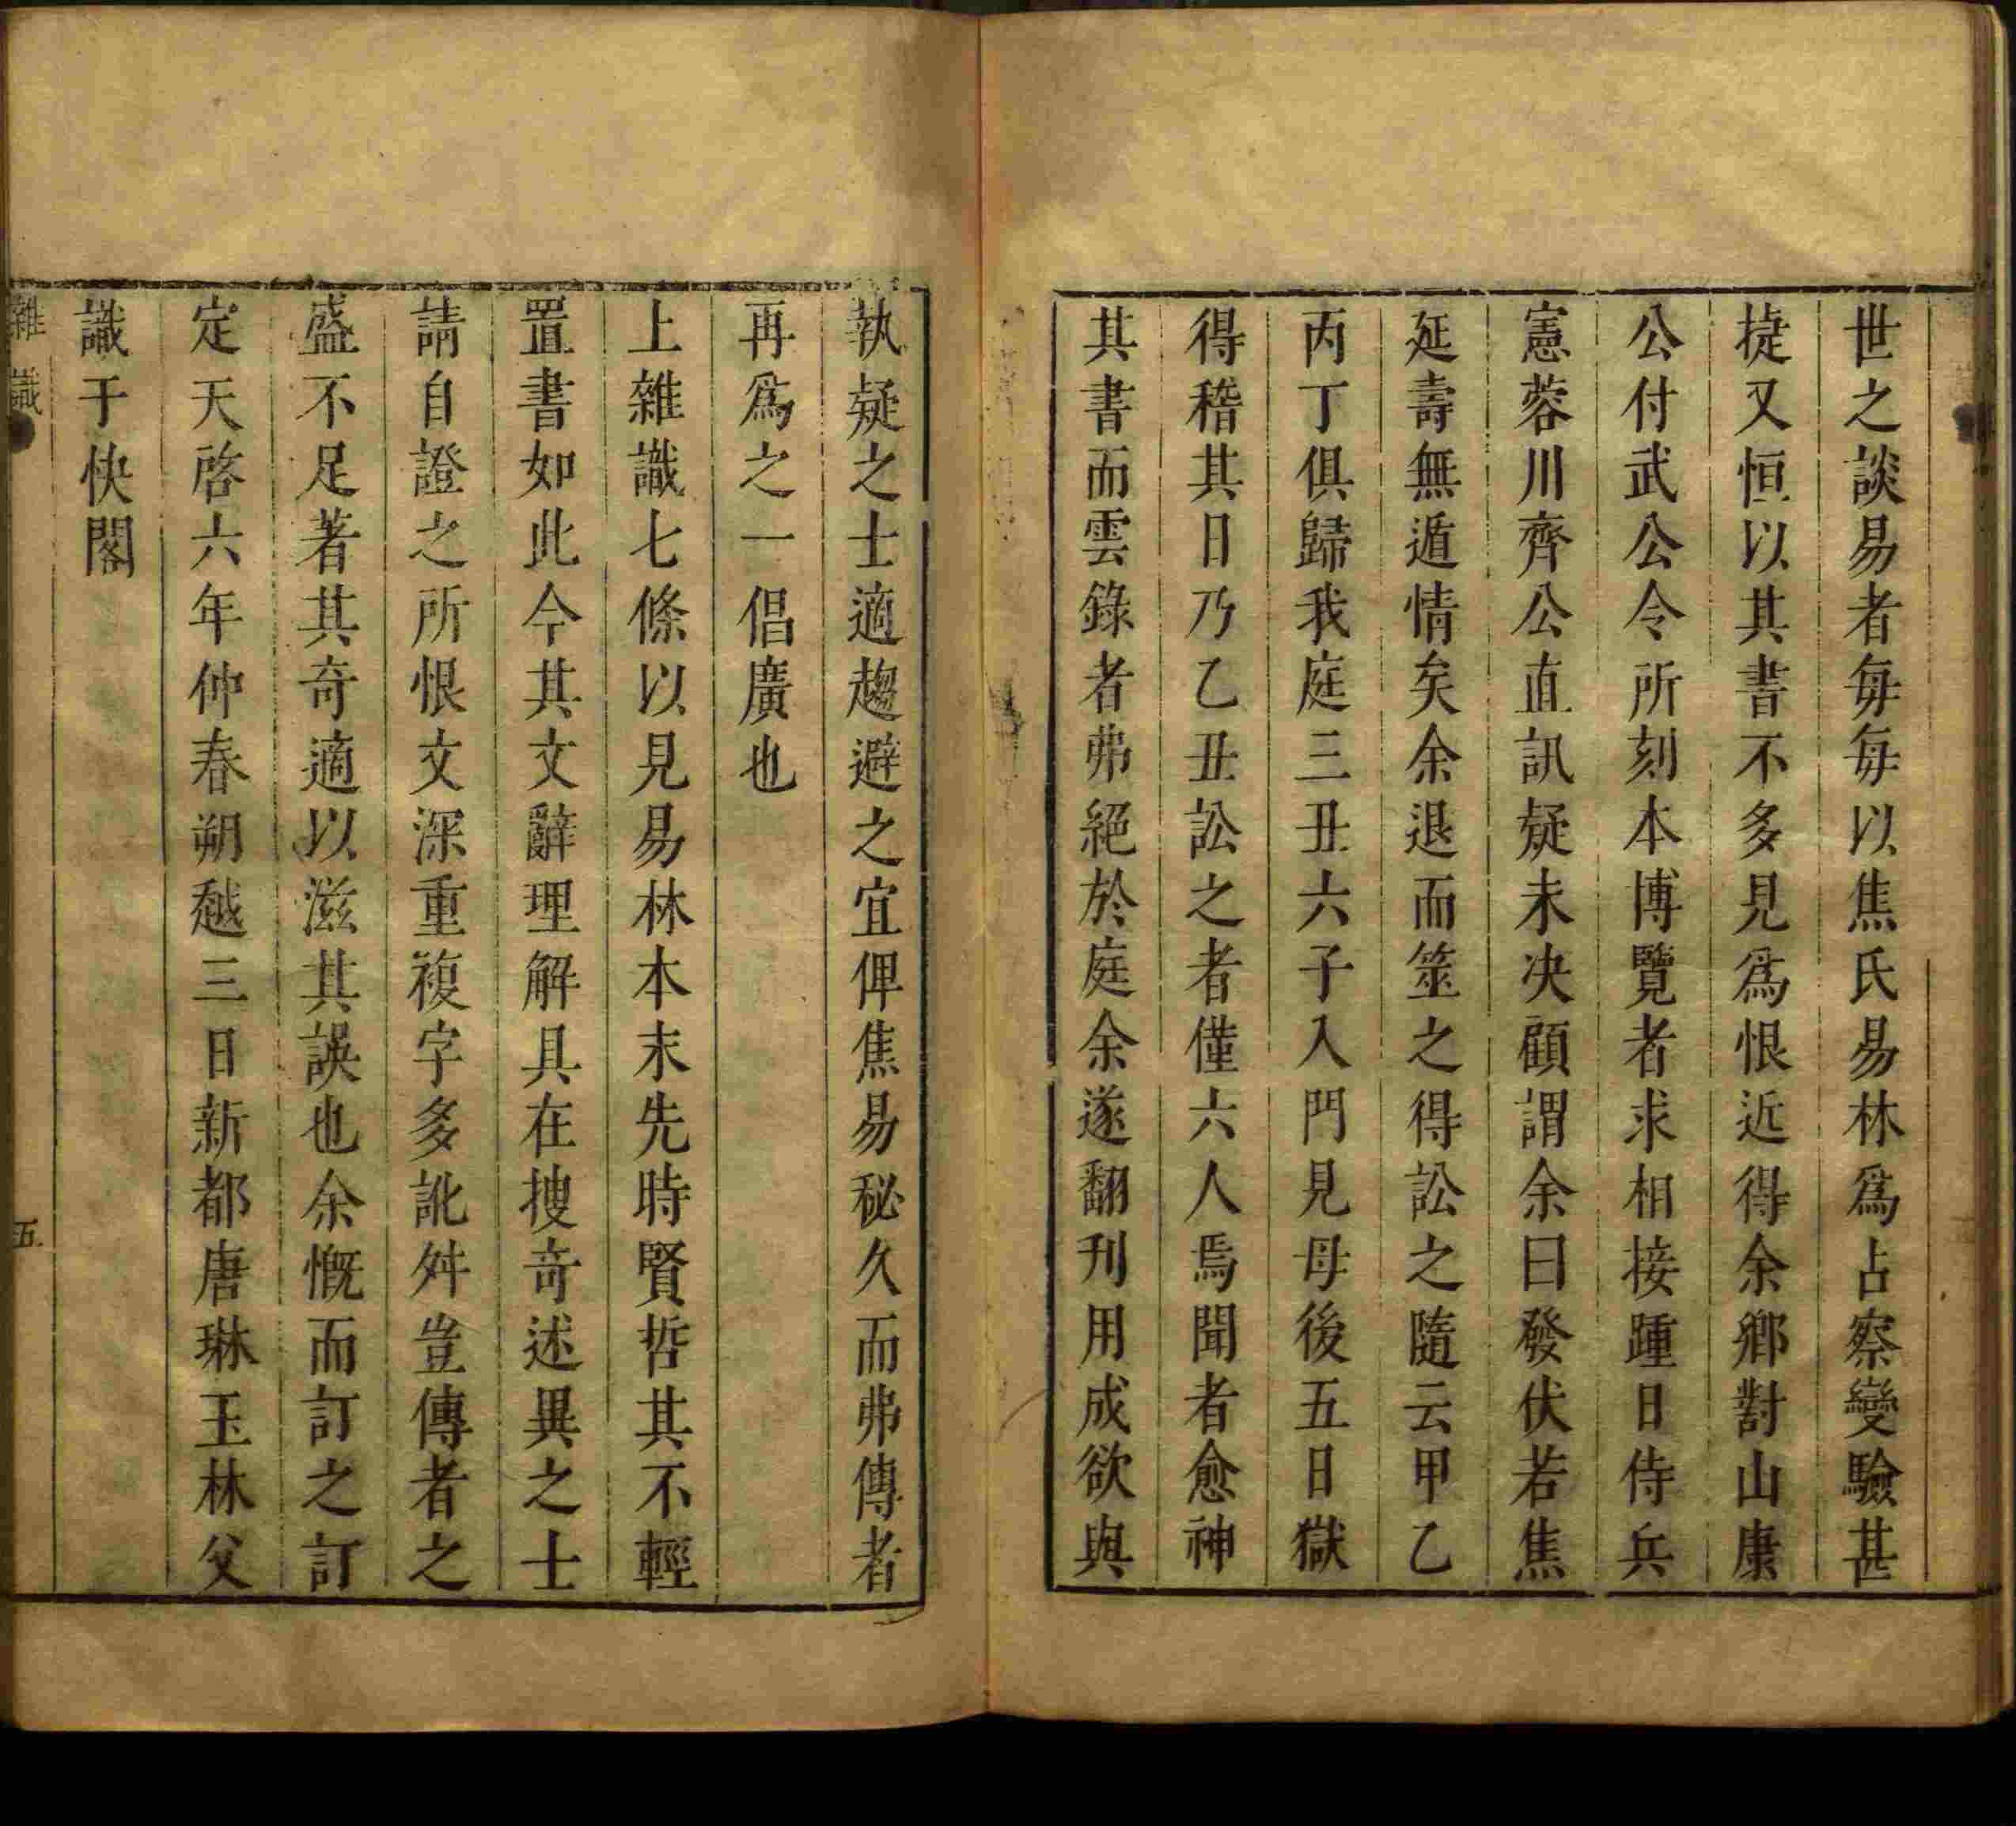 世之談易者每每以焦氏易林爲占察變驗甚
捷又恒以其書不多見爲恨近得余鄉對山康
公付武公令所刻本博覽者求相接踵日侍兵
憲蓉川齊公直訊疑未决顧謂余曰發伏若焦
延壽無遁情矣余退而筮之得訟之隨云甲乙
丙丁俱歸我庭三丑六子入門見母後五日獄
得稽其日乃乙丑訟之者僅六人焉聞者愈神
其書而雲錄者弗絕於庭余遂翻刊用成欲與
執疑之士適趨避之宜俾焦易秘久而弗傳者
再爲之一倡廣也
上雜識七條以見易林本末先時賢哲其不輕
置書如此今其文辭理解具在搜奇述異之士
請自證之所恨文深重複字多訛舛豈傳者之
盛不足著其奇適以滋其誤也余慨而訂之訂
定天啓六年仲春朔越三日新都唐琳玉林父
識于快閣
雜識
五